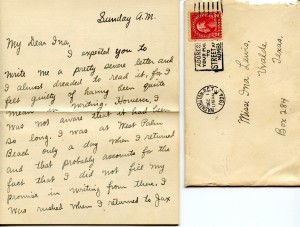 Sunday A.M.
My Dear Ina,
I expected you to
write me a pretty severe letter and
I almost dreaded to read it, for I
felt guilty of having been quite
mean in writing. However, I
was not aware that it had been
so long. I was at West Palm
Beach only a day when I returned
and that probably accounts for the
fact that I did not fill my
promise in writing from there. I
was rushed when I returned to Jax
ADDRESS
YOUR MAIL
TO
STREET AND
NUMBER
Miss Ina Lewis,
Texas,
Box 284